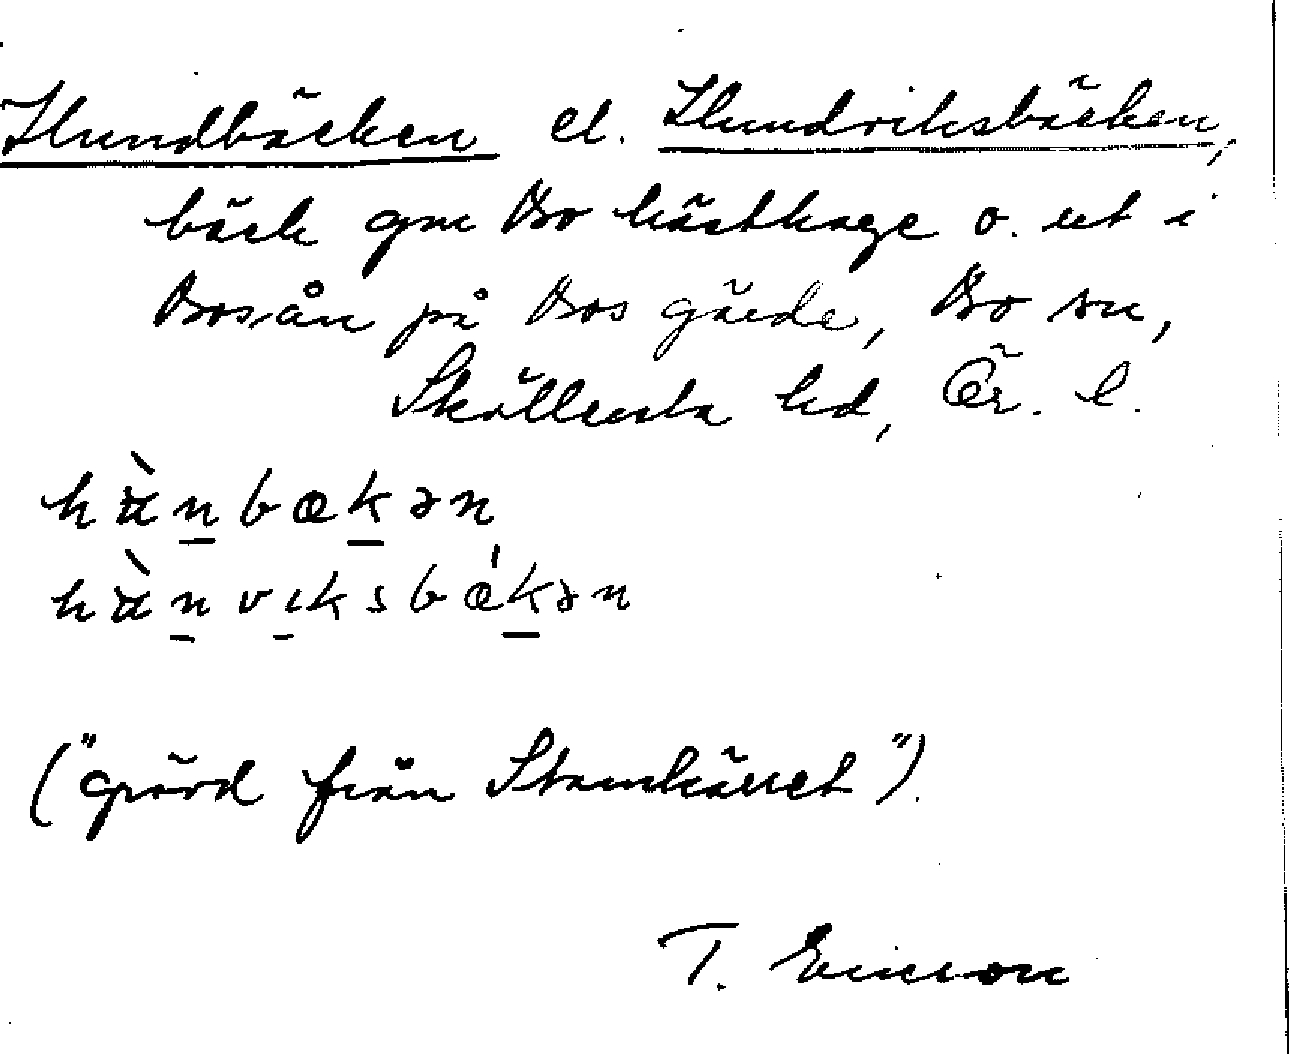 Hundbäcken el. Hundviksbäcken,
bäck gm Bo hästhage o. ut i
Bosån på Bos gärde, Bo sn,
Sköllersta hd, Ör. l.
hùnbækən
hùnviksbǽkən
("grävd från Stamkärret").
T. Ericson